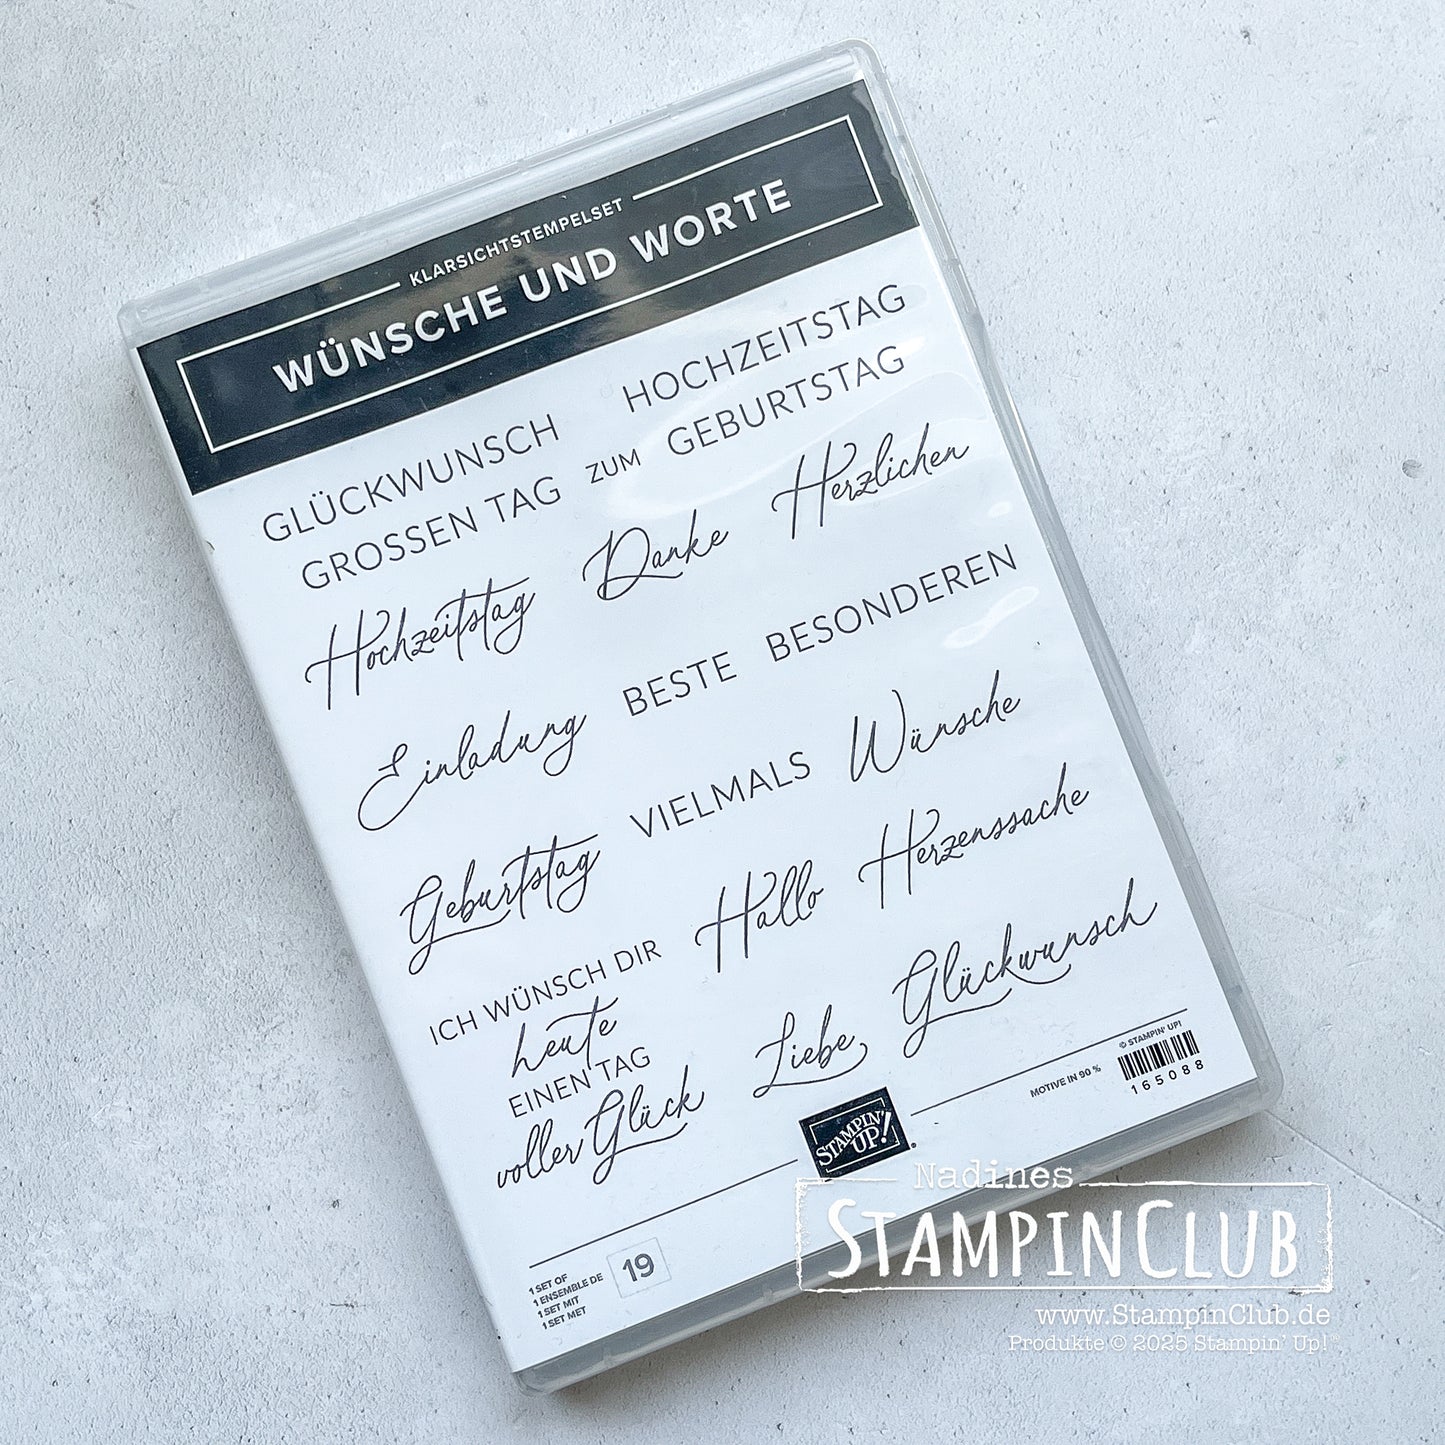 KLARSICHTSTEMPELSET
WÜNSCHE UND WORTE
GLÜCKWUNSCH
HOCHZEITSTAG
GROSSEN TAG
ZUM
GEBURTSTAG
Hochzeitstag
Danke
Herzlichen
Einladung
BESTE
BESONDEREN
Geburtstag
VIELMALS
Wünsche
ICH WÜNSCH DIR
heute
EINEN TAG
voller Glück
Hallo
Herzenssache
Liebe
Glückwunsch
© STAMPIN' UP!
MOTIVE IN 90 %
165088
STAMPIN'
UP!®
1 SET OF
1 ENSEMBLE DE
1 SET MIT
1 SET MET
19
Nadines
STAMPINCLUB
www.StampinClub.de
Produkte © 2025 Stampin' Up!™